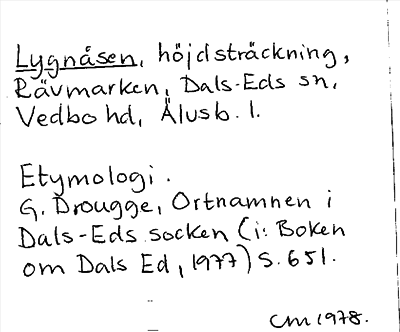 Lygnåsen, höjdsträckning,
Rävmarken, Dals-Eds sn,
Vedbo hd, Älvsb. l.
Etymologi.
G. Drougge, Ortnamnen i
Dals-Eds socken (i: Boken
om Dals Ed, 1977) s. 651.
CM 1978.